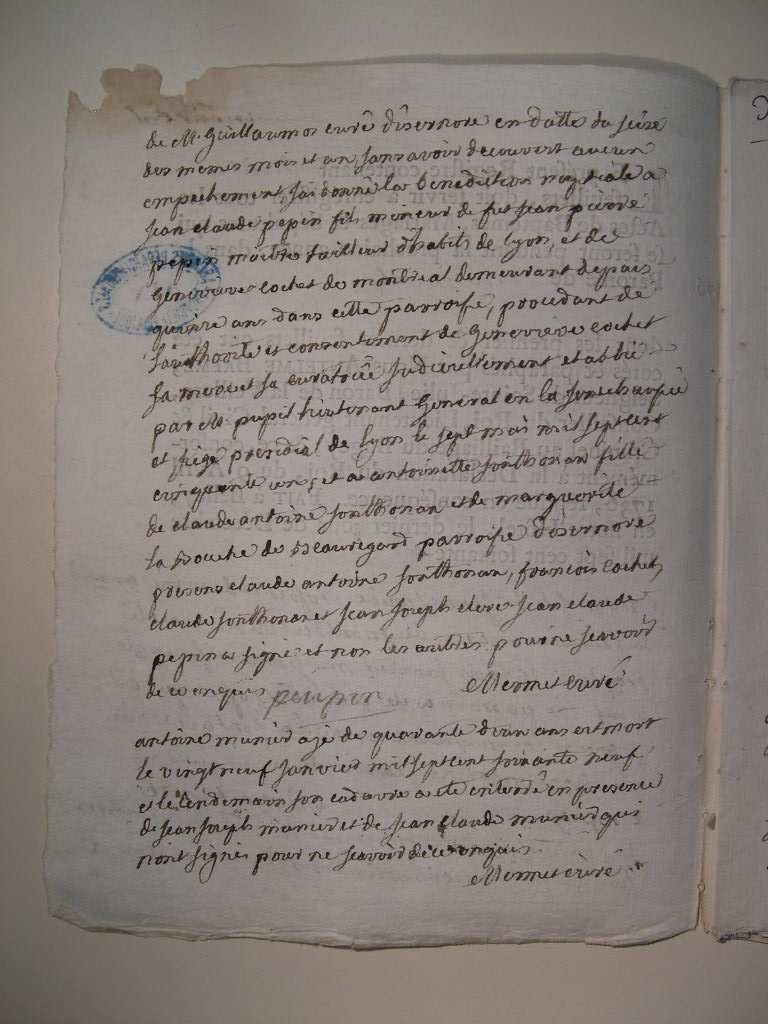 de M. Guillaumos curé d'isernore en datte du seize
des memes mois et an, sans avoir decouvert aucun
empechement, j'ai donné la benediction nuptiale a
jean claude pepin fils mineur de fut jean pierre
pepin maitre tailleur d'habils de lyon, et de
genevieve cochet de montreal demeurant depuis
quinze ans dans cette parroisse, procedant de
l'authorité et consentement de Genevieve cochet
sa mere et sa curatrice judiciellement etablie
par M. pupil lieutenant General en la senechaussée
et siege presidial de lyon le sept mai mil sept cent
cinquante un; et a antoinette sonthonax fille
de claude antoine sonthonax et de marguerite
la Bouche de Beauregard parroisse d'isernore
presens claude antoine sonthonax, françois cochet,
claude sonthonax et jean joseph clerc jean claude
pepin a signé et non les autres pour ne scavoir
de ce enquis pepin Mermet curé
antoine munier agé de quarante d'eux ans est mort
le vingt neuf janvier mil sept cent soixante neuf
et le lendemain son cadavre a ete enterré en presence
de jean joseph munier et de jean claude munier qui
n'ont signés pour ne scavoir de ce enquis.
Mermet curé